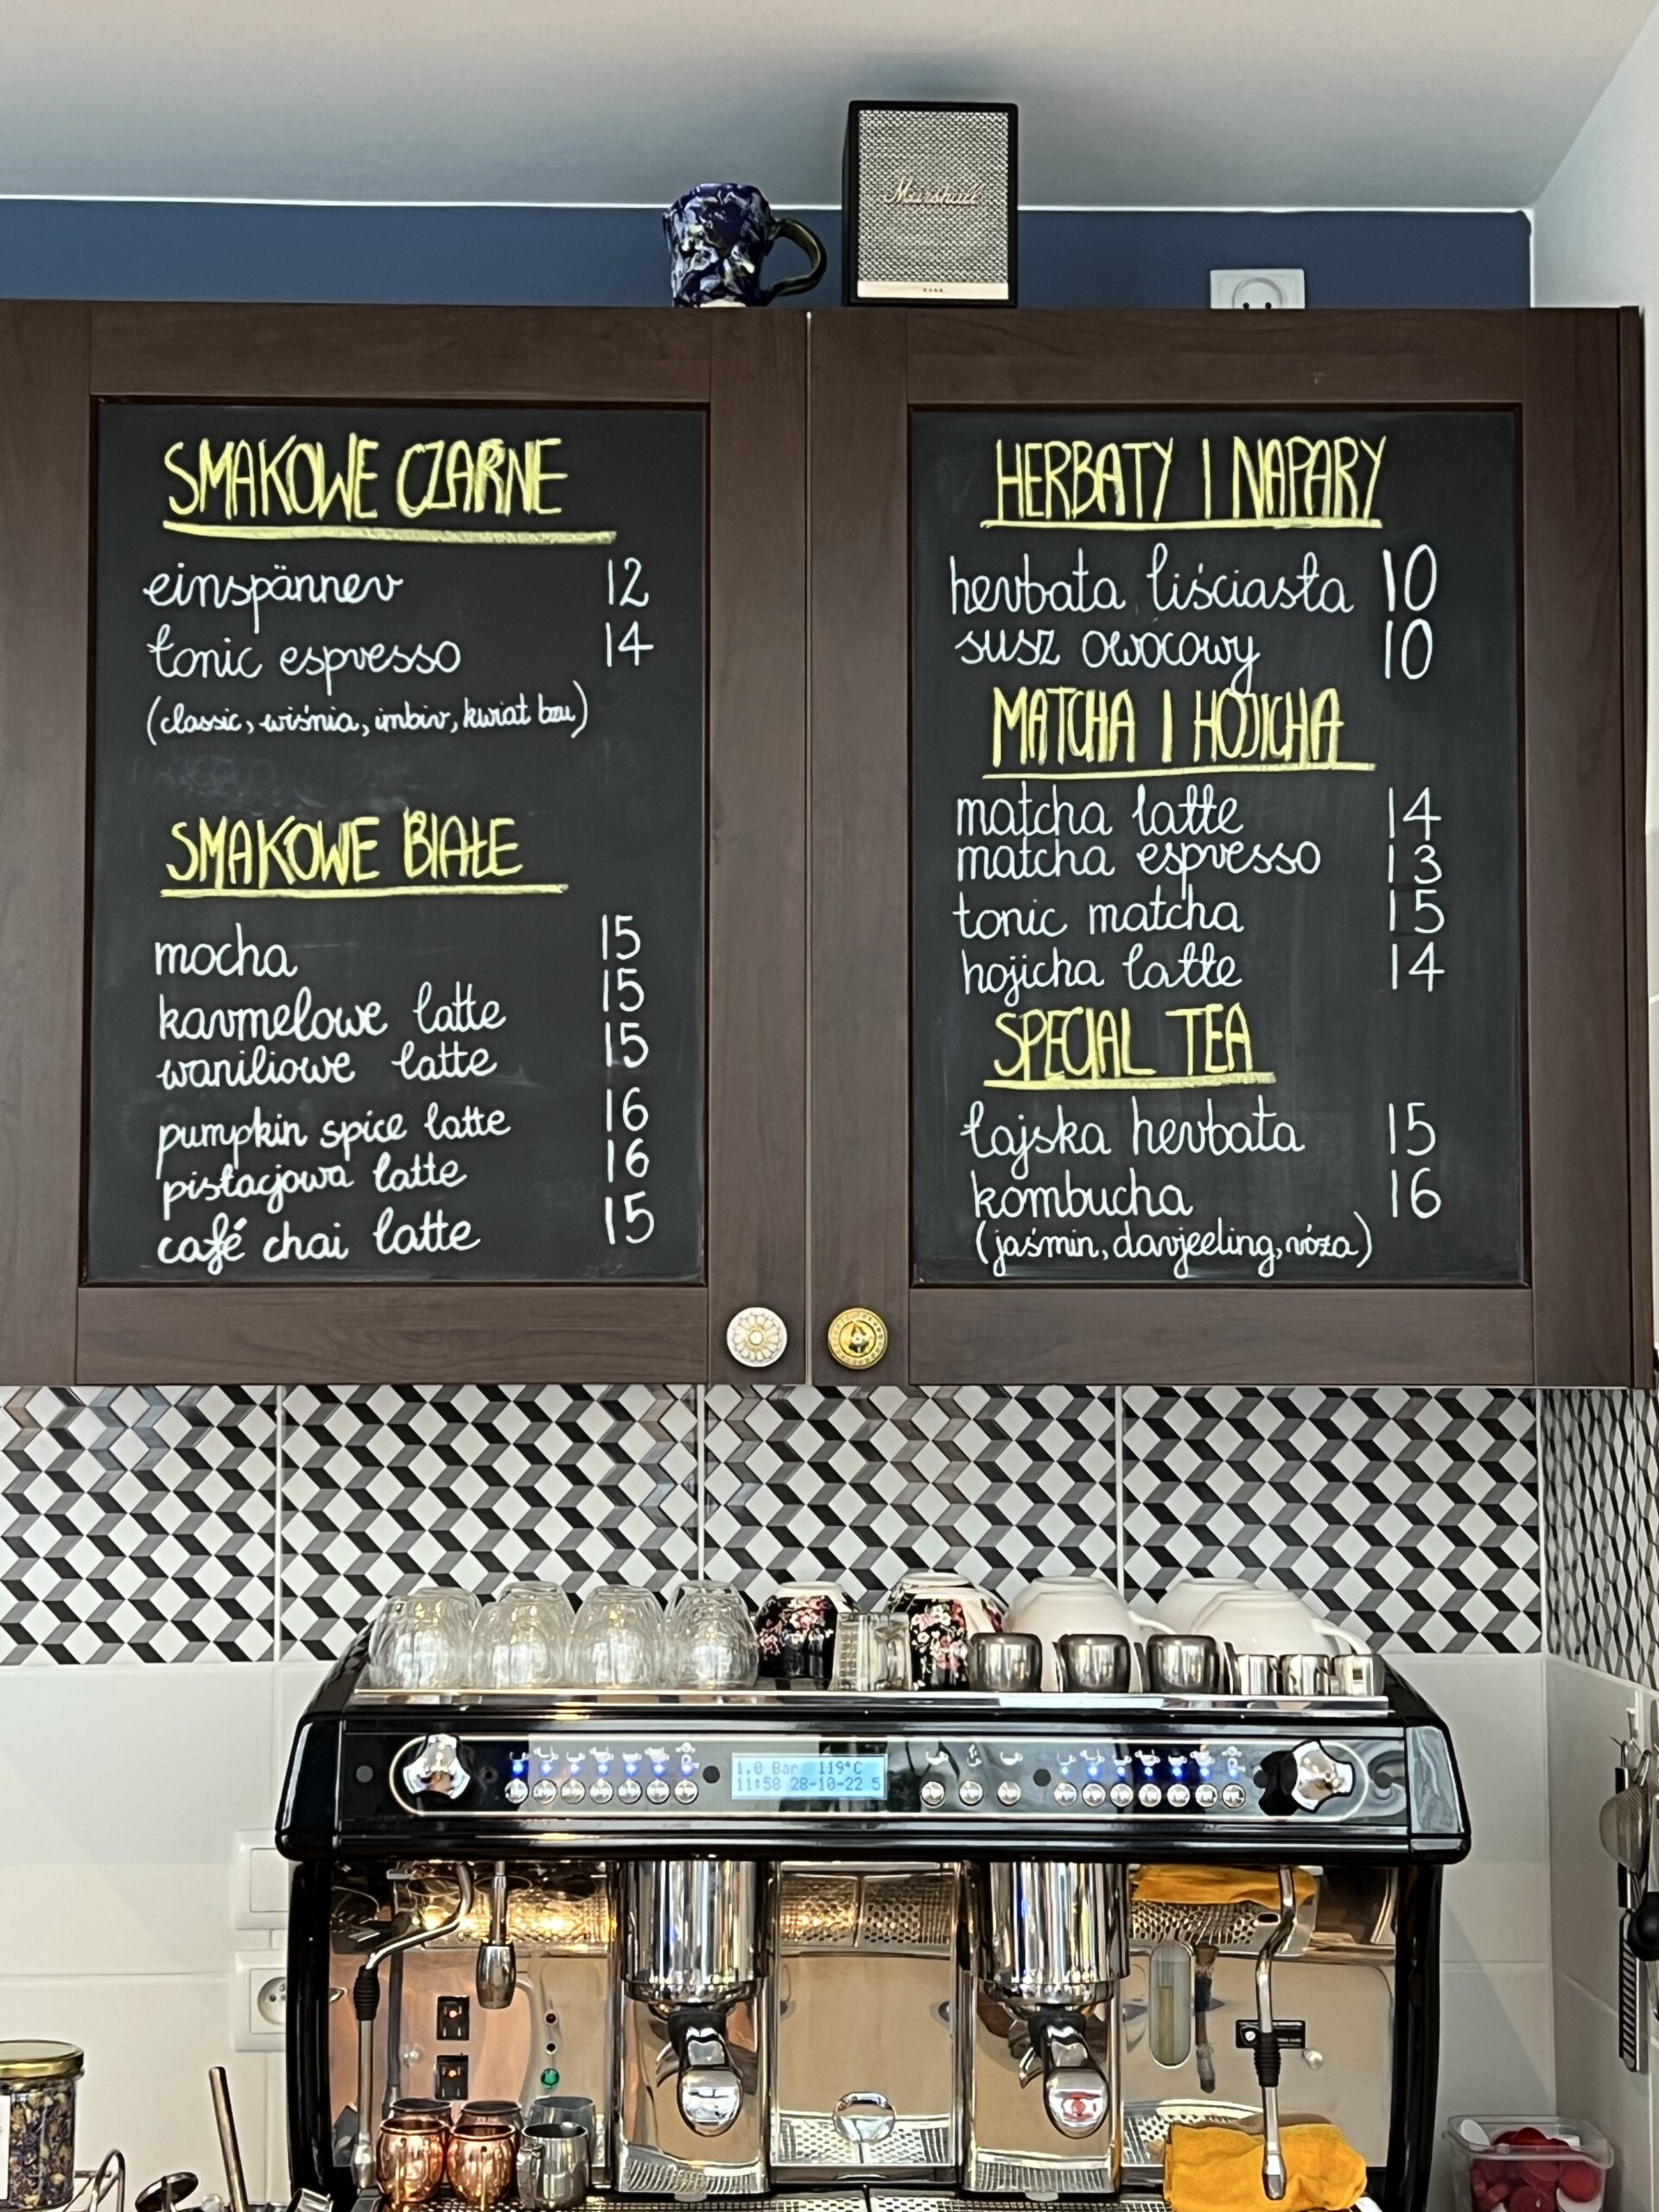 Marshall
SMAKOWE CZARNE
einspänner 12
tonic espresso 14
(classic, wiśnia, imbir, kwiat bzu)
SMAKOWE BIAŁE
mocha 15
karmelowe latte 15
waniliowe latte 15
pumpkin spice latte 16
pistacjowa latte 16
café chai latte 15
HERBATY I NAPARY
herbata liściasta 10
susz owocowy 10
MATCHA I HOJICHA
matcha latte 14
matcha espresso 13
tonic matcha 15
hojicha latte 14
SPECIAL TEA
tajska herbata 15
kombucha 16
(jaśmin, darjeeling, róża)
1.0 Bar 119°C
11:58 28-10-22 5